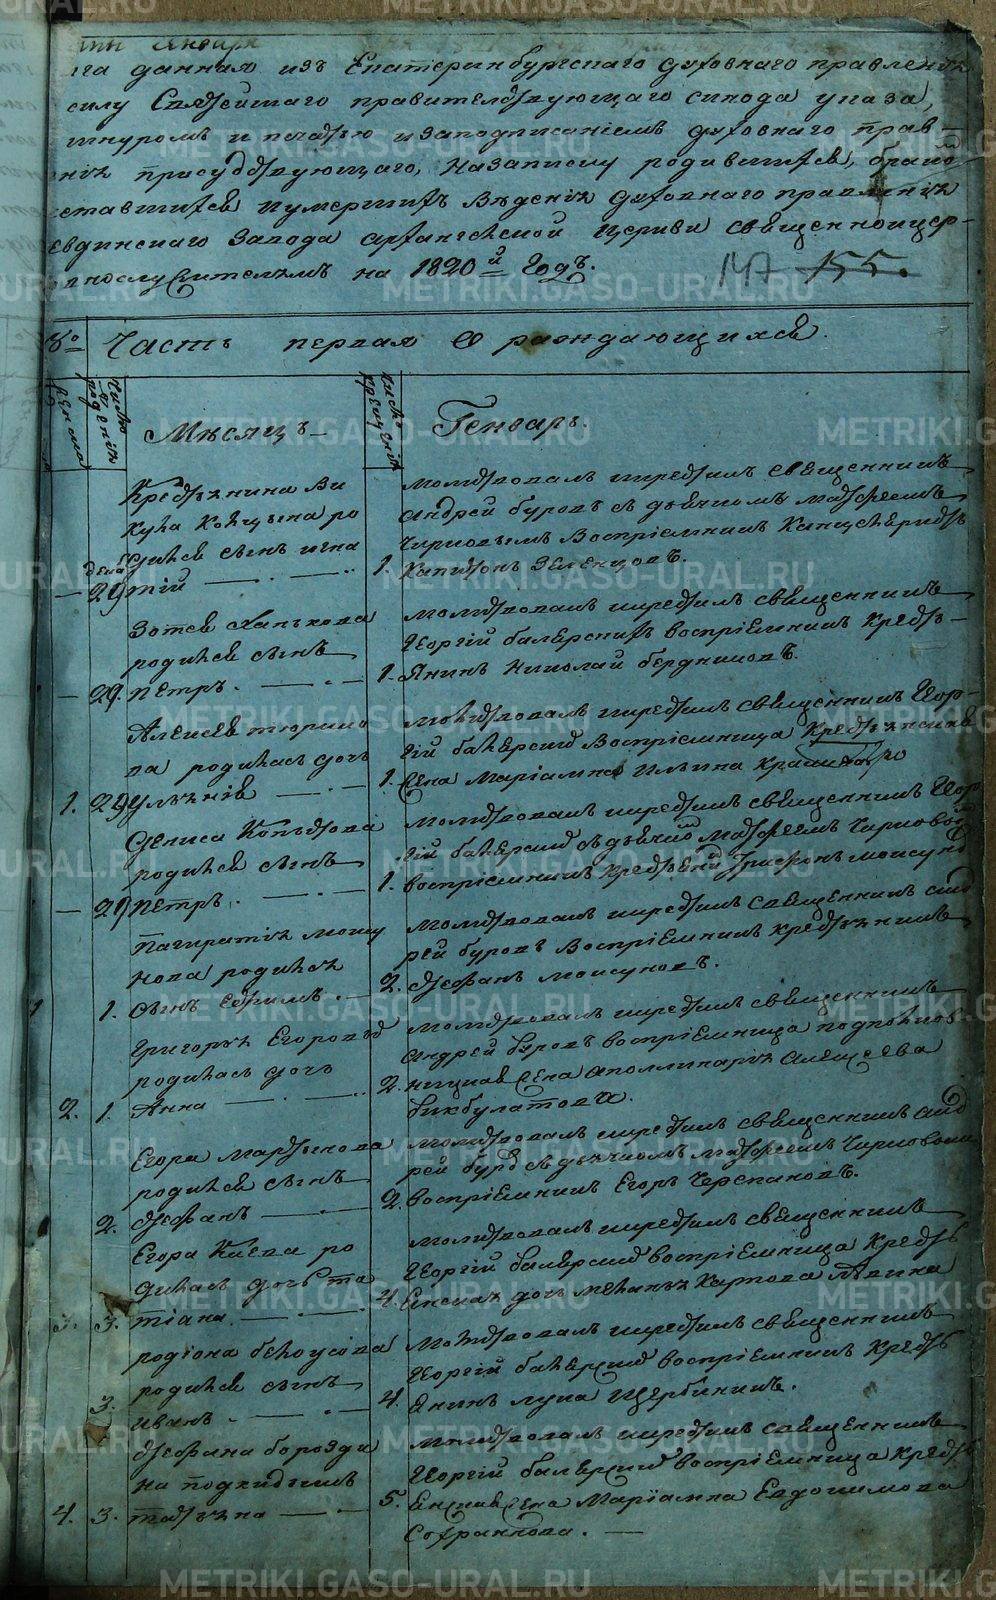 га данная изъ Екатеринбургскаго духовнаго правленія
силу Святейшаго правительствующаго синода указа,
шнуромъ и печатью и заподписаніемъ духовнаго прав-
нія присудствующаго, назаписку родившихся, брако
ставшихся иумершихъ Въденіе духовнаго правленія
евдинскаго завода архангельской церкви священноцер-
внослужителямъ на 1820й годъ.
147 155.
Часть первая О раждающихся.
число рожденія
число крещенія
Мѣсяцъ Генварь.
Крестьянина Ви
кула Копцына ро
дился сынъ игна
29 тій
молитвовалъ икрестилъ священникъ
Андрей буровъ съ дьячкомъ матфеемъ
Чирковымъ Воспріемникъ Канцеляристъ
1. Капитонъ Зеленцовъ.
Зотея
родился сынъ
29. петръ.
молитвовалъ икрестилъ священникъ
Георгій воспріемникъ Крестъ-
1. янинъ Николай бердниковъ.
Алексея тюрико
ва родилась дочь
1. 29 Улѣянія
молитвовалъ икрестилъ священникъ Геор-
гій Воспріемница Крестьянская
1. жена Маріамна Ильина
Дениса Копытова
родился сынъ
29 петръ.
молитвовалъ икрестилъ священникъ Геор
гій съ дьячкой матфеемъ Чирковой
1. воспріемникъ Трифонъ моисуно
панкратія мошу
нова родился
1. сынъ Ефимъ.
молитвовалъ икрестилъ священникъ анд
рей буровъ Воспріемникъ крестьянинъ
2. стефанъ моисуновъ.
Григорья Егоровъ
родилась дочь
2. 1. Анна
молитвовалъ икрестилъ священникъ
андрей буровъ воспріемница
2. жена аполлинарія алексеева
бикбулатова.
Егора Мартынова
родился сынъ
2. стефанъ
молитвовалъ икрестилъ священникъ анд
рей буро съ дьячкомъ матфеемъ Чирковымъ
2. воспріемникъ Егоръ Черепановъ.
Егора Каева ро
дилась дочь та
3. 3. тіана.
молитвовалъ икрестилъ священникъ
Георгій воспріемница Кресть
4. янская дочь Карпова
родіона белоусова
родился сынъ
3. иванъ.
молитвовалъ икрестилъ священникъ
Георгій воспріемникъ Кресть
4. янинъ лука Щербининъ.
стефана борозди
на подкидышъ
4. 3. татьяна
молитвовалъ икрестилъ священникъ
Георгій воспріемница Кресть
5. янская жена Маріамна Евдокимова
Софранкова.
METRIKI.GASO-URAL.RU